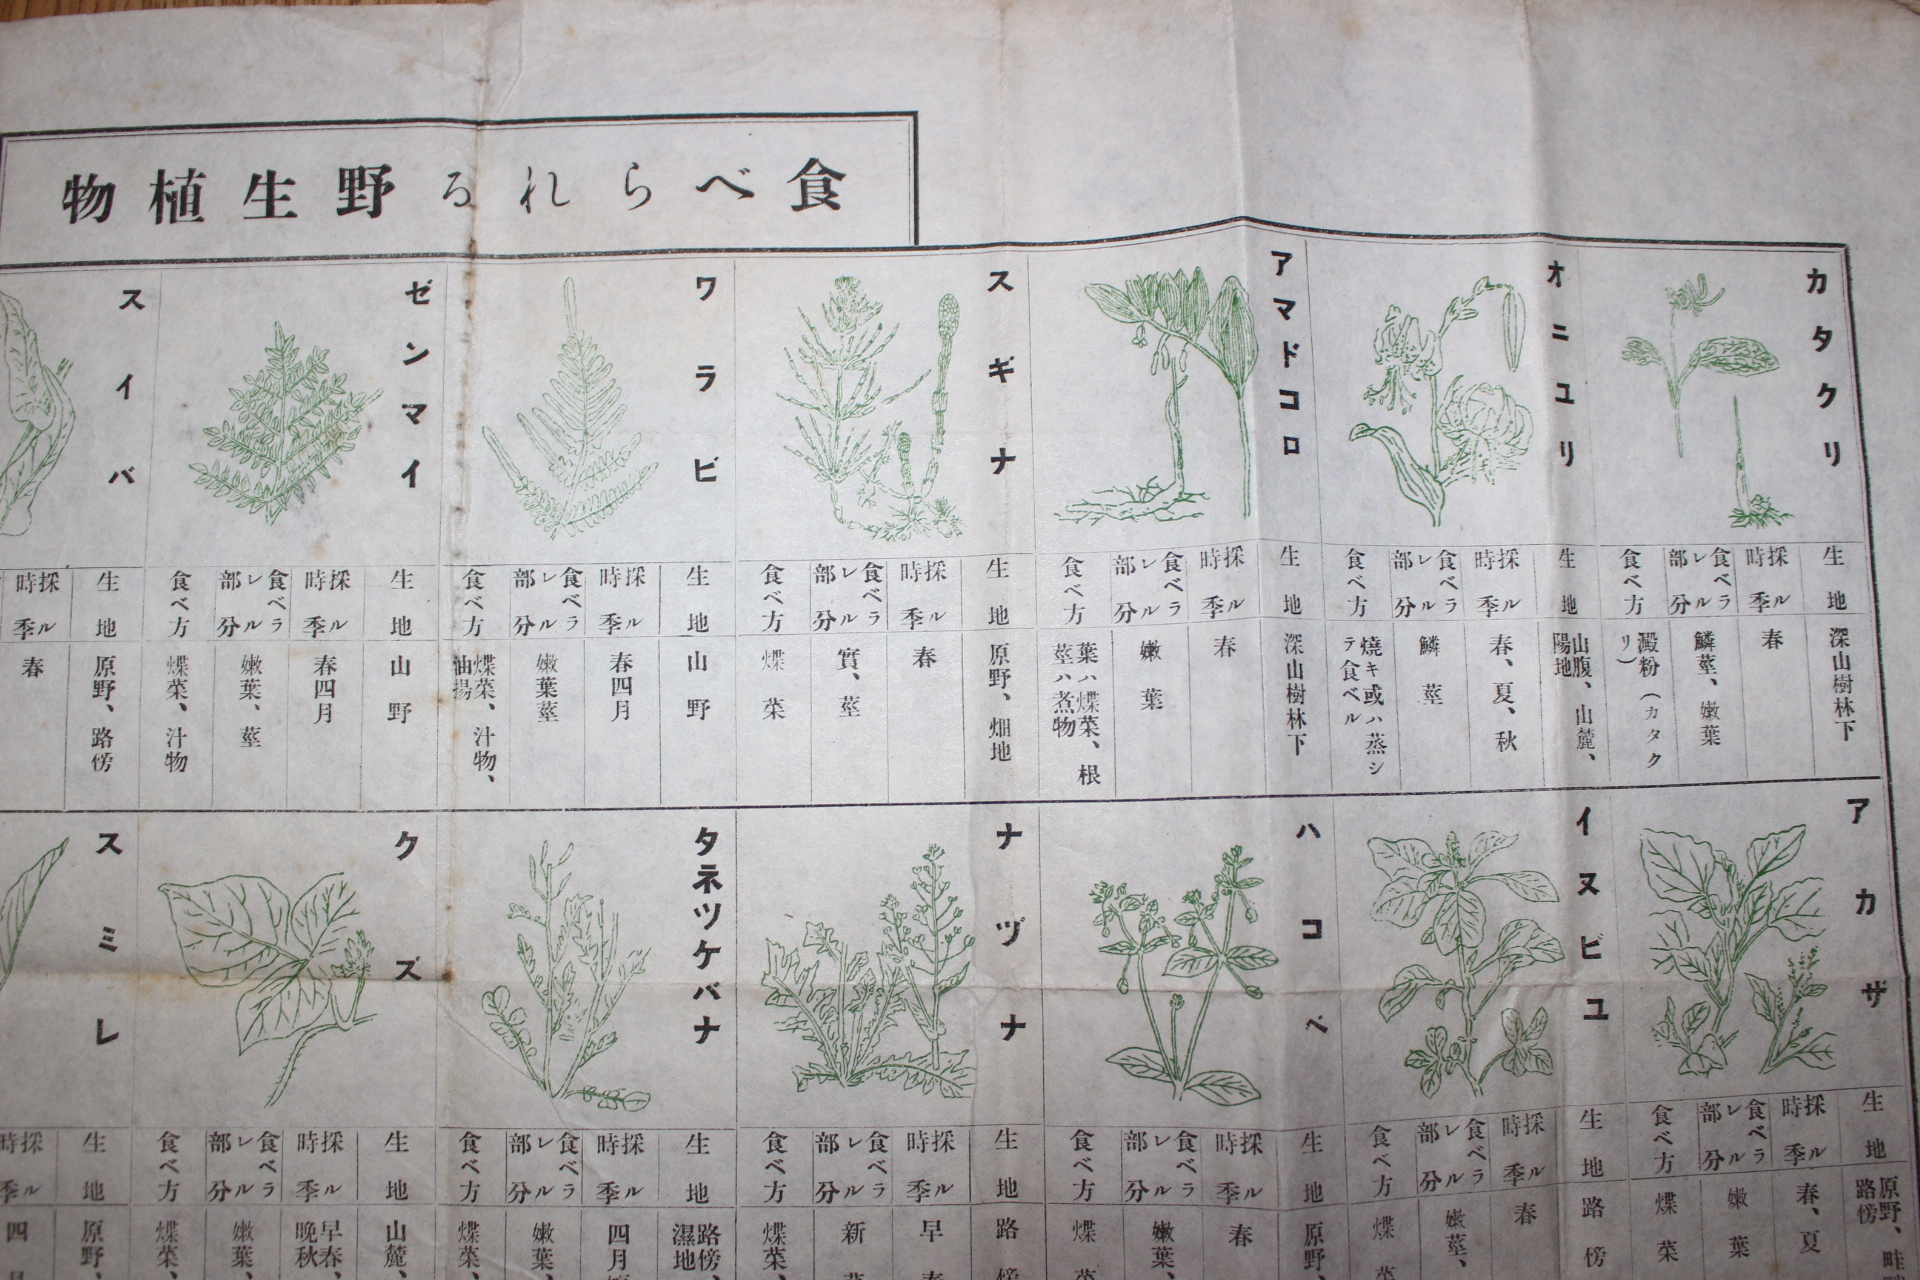 食べられる野生植物
カタクリ
生地
深山樹林下
採ル時季
春
食ベラレル部分
鱗莖、嫩葉
食べ方
澱粉(カタクリ)
オニユリ
生地
山腹、山麓、陽地
採ル時季
春、夏、秋
食ベラレル部分
鱗莖
食べ方
燒キ或ハ蒸シテ食ベル
アマドコロ
生地
深山樹林下
採ル時季
春
食ベラレル部分
嫩葉
食べ方
葉ハ煠菜、根莖ハ煮物
スギナ
生地
原野、畑地
採ル時季
春
食ベラレル部分
實、莖
食べ方
煠菜
ワラビ
生地
山野
採ル時季
春四月
食ベラレル部分
嫩葉莖
食べ方
煠菜、汁物、油揚
ゼンマイ
生地
山野
採ル時季
春四月
食ベラレル部分
嫩葉、莖
食べ方
煠菜、汁物
スイバ
生地
原野、路傍
採ル時季
春
アカザ
生地
原野、畦
路傍
採ル時季
春、夏
食ベラレル部分
嫩葉
食べ方
煠菜
イヌビユ
生地
路傍
採ル時季
春
食ベラレル部分
嫩莖、
食べ方
煠菜
ハコベ
生地
原野、
採ル時季
春
食ベラレル部分
嫩葉、
食べ方
煠菜
ナヅナ
生地
路傍
採ル時季
早春
食ベラレル部分
新
食べ方
煠菜、
タネツケバナ
生地
路傍、
濕地
採ル時季
四月
食ベラレル部分
嫩葉、
食べ方
煠菜、
クズ
生地
山麓、
採ル時季
早春、
晩秋
食ベラレル部分
嫩葉、
食べ方
煠菜、
スミレ
生地
原野、
採ル時季
四月